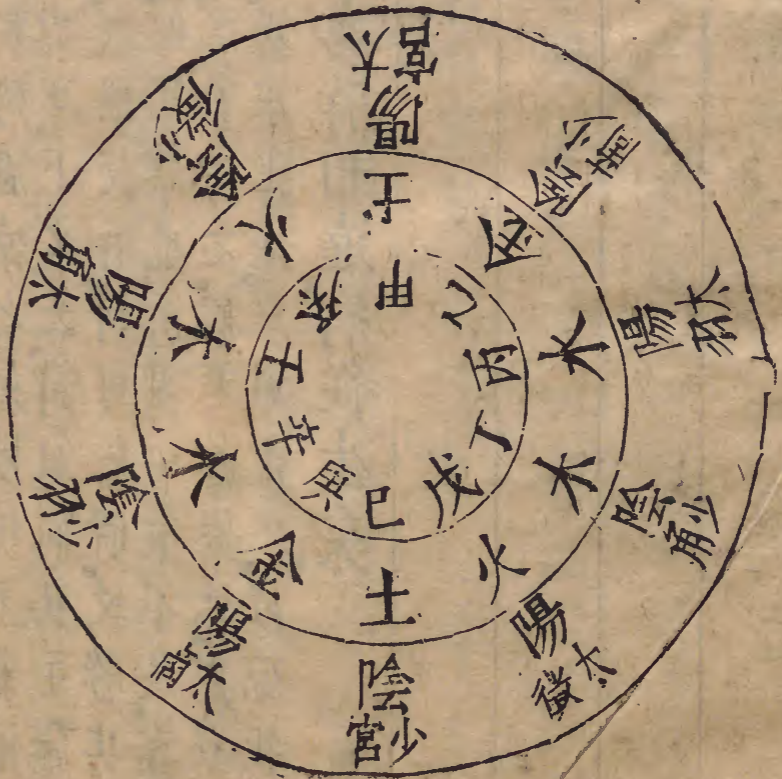 甲
乙
丙
丁
戊
巳
庚
辛
壬
癸
土
金
水
木
火
土
金
水
木
火
陽
太宮
陰
少商
陽
太羽
陰
少角
陽
太徵
陰
少宮
陽
太商
陰
少羽
陽
太角
陰
少徵